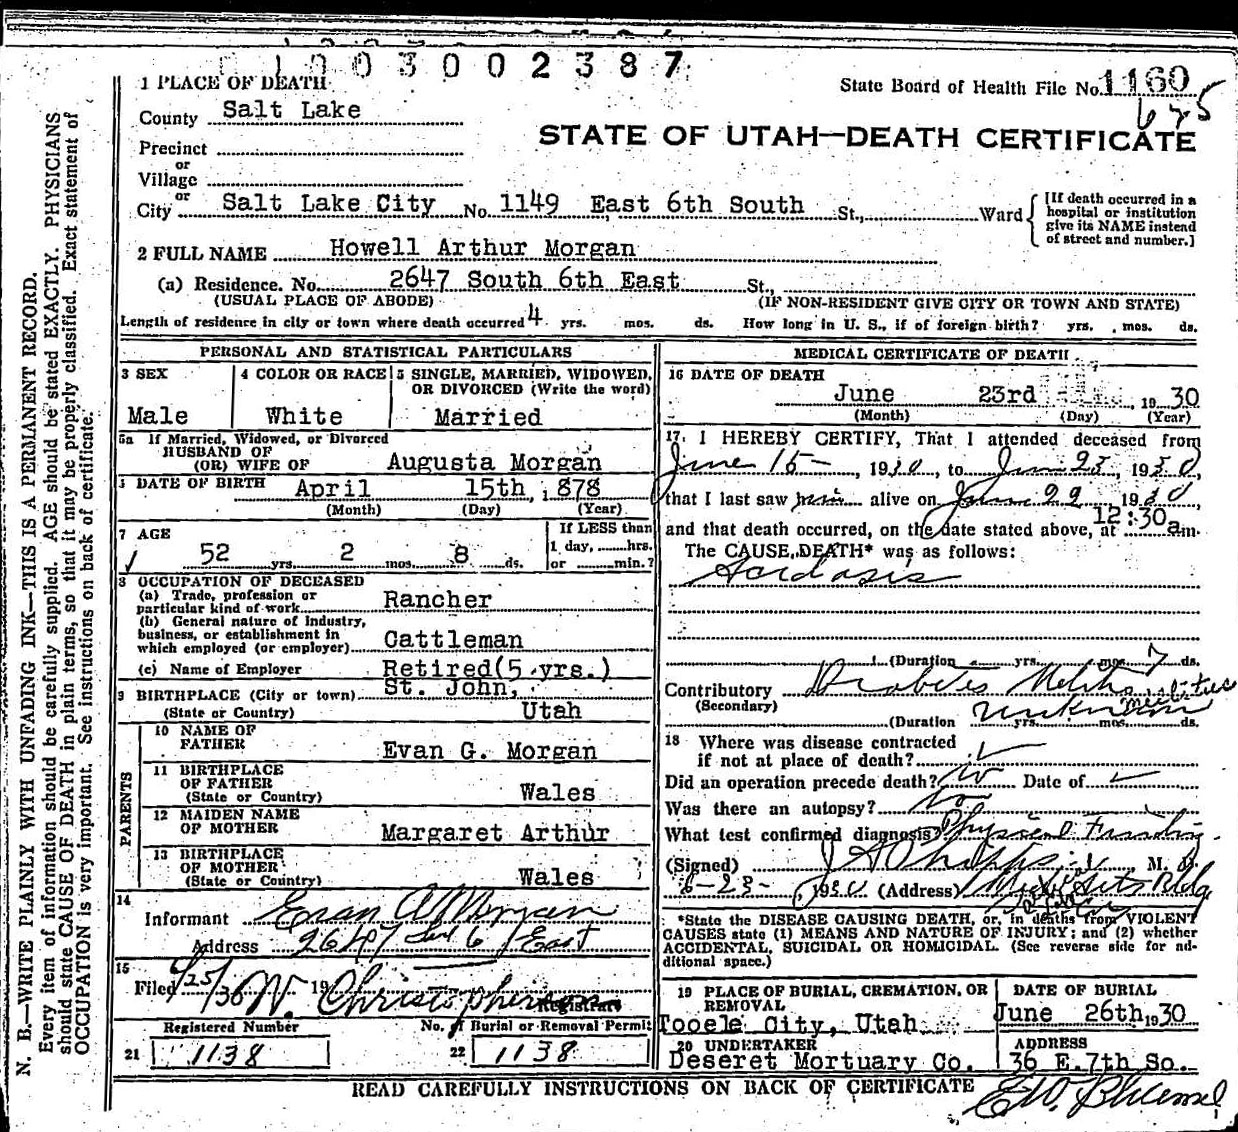 1003002387
1 PLACE OF DEATH
State Board of Health File No. 1160
625
County Salt Lake
STATE OF UTAH—DEATH CERTIFICATE
Precinct
or
Village
or
City Salt Lake City No. 1149 East 6th South St., Ward
[If death occurred in a hospital or institution give its NAME instead of street and number.]
2 FULL NAME Howell Arthur Morgan
(a) Residence. No. 2647 South 6th East St.,
(USUAL PLACE OF ABODE) (IF NON-RESIDENT GIVE CITY OR TOWN AND STATE)
Length of residence in city or town where death occurred 4 yrs. mos. ds. How long in U. S., if of foreign birth? yrs. mos. ds.
PERSONAL AND STATISTICAL PARTICULARS
3 SEX
Male
4 COLOR OR RACE
White
5 SINGLE, MARRIED, WIDOWED, OR DIVORCED (Write the word)
Married
5a If Married, Widowed, or Divorced
HUSBAND OF
(OR) WIFE OF Augusta Morgan
DATE OF BIRTH April 15th, 1878
(Month) (Day) (Year)
7 AGE
52 yrs. 2 mos. 8 ds.
If LESS than
1 day, hrs.
or min.?
8 OCCUPATION OF DECEASED
(a) Trade, profession or
particular kind of work Rancher
(b) General nature of Industry,
business, or establishment in
which employed (or employer) Cattleman
(c) Name of Employer Retired(5 yrs.)
9 BIRTHPLACE (City or town) St. John,
(State or Country) Utah
PARENTS
10 NAME OF
FATHER Evan G. Morgan
11 BIRTHPLACE
OF FATHER
(State or Country) Wales
12 MAIDEN NAME
OF MOTHER Margaret Arthur
13 BIRTHPLACE
OF MOTHER
(State or Country) Wales
14
Informant Evan A Morgan
Address 2647 So 6 East
15
Filed 6/25/30 19 W. Christopherson
Registrar
Registered Number
21 1138
No. of Burial or Removal Permit
22 1138
MEDICAL CERTIFICATE OF DEATH
16 DATE OF DEATH
June 23rd, 1930
(Month) (Day) (Year)
17. I HEREBY CERTIFY, That I attended deceased from
June 15-, 1930, to June 23 1930,
that I last saw him alive on June 22, 1930,
and that death occurred, on the date stated above, at 12:30 am.
The CAUSE, DEATH* was as follows:
Acidosis
(Duration yrs. mos. 7 ds.
Contributory Diabetes Melitus mellitus
(Secondary)
(Duration unknown yrs. mos. ds.
18 Where was disease contracted
if not at place of death?
Did an operation precede death? No Date of
Was there an autopsy? No
What test confirmed diagnosis? Physical Finding.
(Signed) J A Phipps M. D.
6-23- 1930 (Address) Bldg
*State the DISEASE CAUSING DEATH, or, in deaths from VIOLENT
CAUSES state (1) MEANS AND NATURE OF INJURY; and (2) whether
ACCIDENTAL, SUICIDAL OR HOMICIDAL. (See reverse side for additional space.)
19 PLACE OF BURIAL, CREMATION, OR
REMOVAL
Tooele City, Utah
DATE OF BURIAL
June 26th, 1930
20 UNDERTAKER
Deseret Mortuary Co.
ADDRESS
36 E. 7th So.
READ CAREFULLY INSTRUCTIONS ON BACK OF CERTIFICATE
N. B.—WRITE PLAINLY WITH UNFADING INK—THIS IS A PERMANENT RECORD.
Every item of information should be carefully supplied. AGE should be stated EXACTLY. PHYSICIANS
should state CAUSE OF DEATH in plain terms, so that it may be properly classified. Exact statement of
OCCUPATION is very important. See instructions on back of certificate.